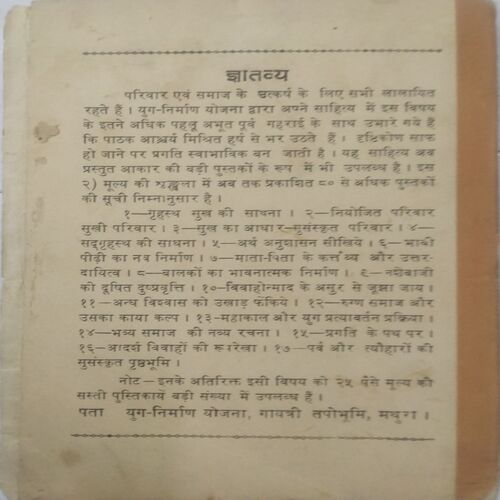 ज्ञातव्य
परिवार एवं समाज के उत्कर्ष के लिए सभी लालायित
रहते हैं । युग-निर्माण योजना द्वारा अपने साहित्य में इस विषय
के इतने अधिक पहलू अभूत पूर्व गहराई के साथ उभारे गये हैं
कि पाठक आश्चर्य मिश्रित हर्ष से भर उठते हैं । दृष्टिकोण साफ
हो जाने पर प्रगति स्वाभाविक बन जाती है । यह साहित्य अब
प्रस्तुत आकार की बड़ी पुस्तकों के रूप में भी उपलब्ध है । इस
२) मूल्य की श्रृङ्खला में अब तक प्रकाशित ८० से अधिक पुस्तकों
की सूची निम्नानुसार है ।
१—गृहस्थ सुख की साधना । २—नियोजित परिवार
सुखी परिवार । ३—सुख का आधार—सुसंस्कृत परिवार । ४—
सद्गृहस्थ की साधना । ५—अर्थ अनुशासन सीखिये । ६—भावी
पीढ़ी का नव निर्माण । ७—माता-पिता के कर्त्तव्य और उत्तर-
दायित्व । ८—बालकों का भावनात्मक निर्माण । ९—नशेबाजी
की दूषित दुष्प्रवृत्ति । १०—विवाहोन्माद के असुर से जूझा जाय ।
११—अन्ध विश्वास को उखाड़ फेंकिये । १२—रुग्ण समाज और
उसका काया कल्प । १३-महाकाल और युग प्रत्यावर्तन प्रक्रिया ।
१४—भव्य समाज की नव्य रचना । १५—प्रगति के पथ पर ।
१६—आदर्श विवाहों की रूपरेखा । १७—पर्व और त्यौहारों की
सुसंस्कृत पृष्ठभूमि ।
नोट—इनके अतिरिक्त इसी विषय की २५ पैसे मूल्य की
सस्ती पुस्तिकायें बड़ी संख्या में उपलब्ध हैं ।
पता युग-निर्माण योजना, गायत्री तपोभूमि, मथुरा ।